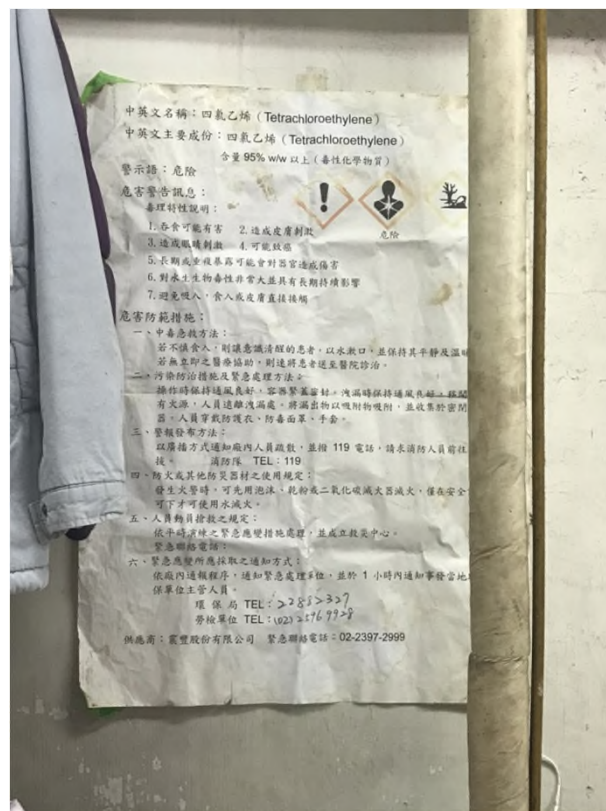 中英文名稱：四氯乙烯（Tetrachloroethylene）
中英文主要成份：四氯乙烯（Tetrachloroethylene）
含量 95% w/w 以上（毒性化學物質）
警示語：危險
危害警告訊息：
毒理特性說明：
1. 吞食可能有害　2. 造成皮膚刺激
3. 造成眼睛刺激　4. 可能致癌
危險
5. 長期或重複暴露可能會對器官造成傷害
6. 對水生生物毒性非常大並具有長期持續影響
7. 避免吸入、食入或皮膚直接接觸
危害防範措施：
一、中毒急救方法：
若不慎食入，則讓意識清醒的患者，以水漱口，並保持其平靜及溫暖
若無立即之醫療協助，則速將患者送至醫院診治。
二、污染防治措施及緊急處理方法：
操作時保持通風良好，容器緊蓋密封，洩漏時保持通風良好，移開
有火源，人員遠離洩漏處，將漏出物以吸附物吸附，並收集於密閉
器，人員穿戴防護衣、防毒面罩、手套。
三、警報發布方法：
以廣播方式通知廠內人員疏散，並撥 119 電話，請求消防人員前往
援。　消防隊　TEL：119
四、防火或其他防災器材之使用規定：
發生火警時，可先用泡沫、乾粉或二氧化碳滅火器滅火，僅在安全
可下才可使用水滅火。
五、人員動員搶救之規定：
依平時演練之緊急應變措施處理，並成立救災中心。
緊急聯絡電話：
六、緊急應變所應採取之通知方式：
依廠內通報程序，通知緊急處理單位，並於 1 小時內通知事發當地
保單位主管人員。
環 保 局 TEL：22882327
勞檢單位 TEL：(02)25969928
供應商：寰豐股份有限公司　緊急聯絡電話：02-2397-2999